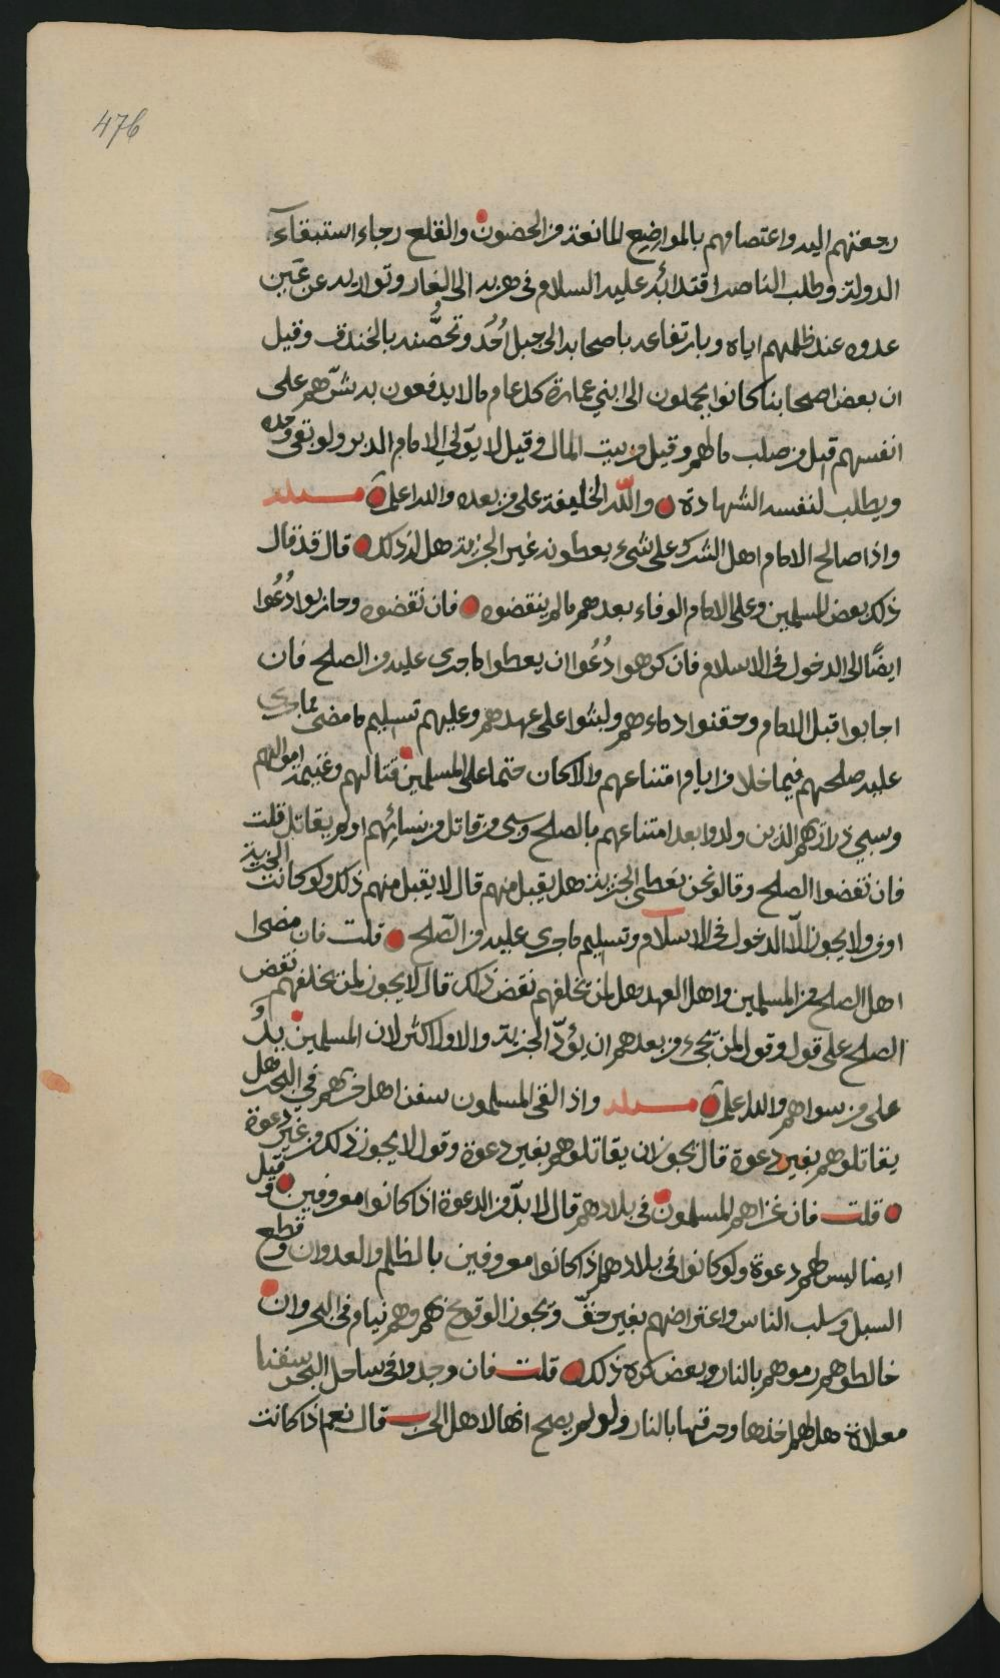 476
رجعتهم اليه واعتصامهم بالمواضع المانعة من الحضون والقلع رجاء استبقآء
الدولة وطلب الناصر اقتدائه عليه السلام في هربه الى الغار وتواريه عن عَين
عدوه عند ظلمهم اياه وبارتفاعه باصحابه الى جبل اُحُد وتحصُّنه بالخندق وقيل
ان بعض اصحابنا كانوا يحملون الى ابني عمارة كل عام مالا يدفعون به شرّهم على
انفسهم قيل من صلب مالهم وقيل من بيت المال وقيل لا يتولي الامام الدبر ولو بقى وحده
ويطلب لنفسه الشهادة والله الخليفة على من بعده والله اعلم مسئلة
واذا صالح الامام اهل الشرك على شيء يعطونه غير الجزية هل له ذلك قال قد قال
ذلك بعض المسلمين وعلى الامام الوفاء بعدهم ما لم ينقضوه فان نقضوه وحاربوا دُعُوا
ايضًا الى الدخول في الاسلام فان كرهوا دُعُوا ان يعطوا ما جرى عليه من الصلح فان
اجابوا قبل الامام وحقنوا دماءهم ولبثوا على عهدهم وعليهم تسليم ما مضى مما جرى
عليه صلحهم فيما خلا من ايام امتناعهم والا كان حتما على المسلمين قتالهم وغنيمة اموالهم
وسبي ذراريهم الذين ولدوا بعد امتناعهم بالصلح وسبى من قاتل من نسائهم او لم يقاتل قلت
فان نقضوا الصلح وقالو نحن نعطى الجزية هل يقبل منهم قال لا يقبل منهم ذلك ولو كانت الجزية
اوفر ولا يجوز الّا الدخول في الاسلام وتسليم ما جرى عليه من الصّلح قلت فان مضوا
اهل الصلح من المسلمين واهل العهد هل لمن تخلفهم نقض ذلك قال لا يجوز لمن يخلفهم نقض
الصلح على قول وقول لمن يجيء من بعدهم ان يؤدّ الجزية والاول اكثر لان المسلمين يدٌ
على من سواهم والله اعلم مسئلة واذا لقى المسلمون سفن اهل حربهم في البحر هل
يقاتلوهم بغير دعوة قال يجوز ان يقاتلوهم بغير دعوة وقول لا يجوز ذلك من غير دعوة
قلت فان غزاهم المسلمون في بلادهم قال لا بدّ من الدعوة اذا كانوا معروفين وقيل
ايضا ليس لهم دعوة ولو كانوا في بلادهم اذا كانوا معروفين بالظلم والعدوان وقطع
السبل وسلب الناس واعتراضهم بغير حقّ ويجوز الوقوع بهم وهم نيام في البحر وان
خالطوهم رموهم بالنار وبعض كره ذلك قلت فان وجدوا في ساحل البحر سفنا
معلاة هل لهم اخذها وحرقها بالنار ولو لم يصح انها لاهل الحرب قال نعم اذا كانت